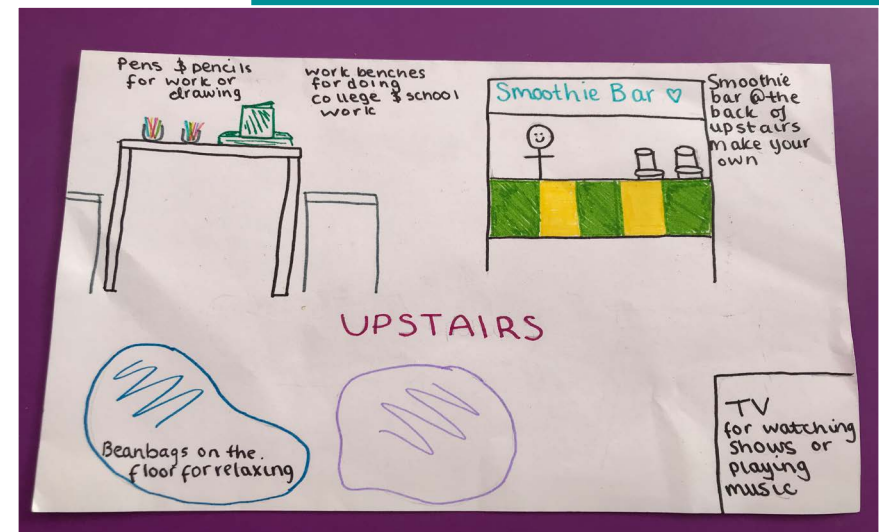 Pens $ pencils
for work or
drawing
work benches
for doing
college $ school
work
Smoothie Bar ♡
Smoothie
bar @the
back of
upstairs
make your
own
UPSTAIRS
Beanbags on the.
floor for relaxing
TV
for watching
shows or
playing
music